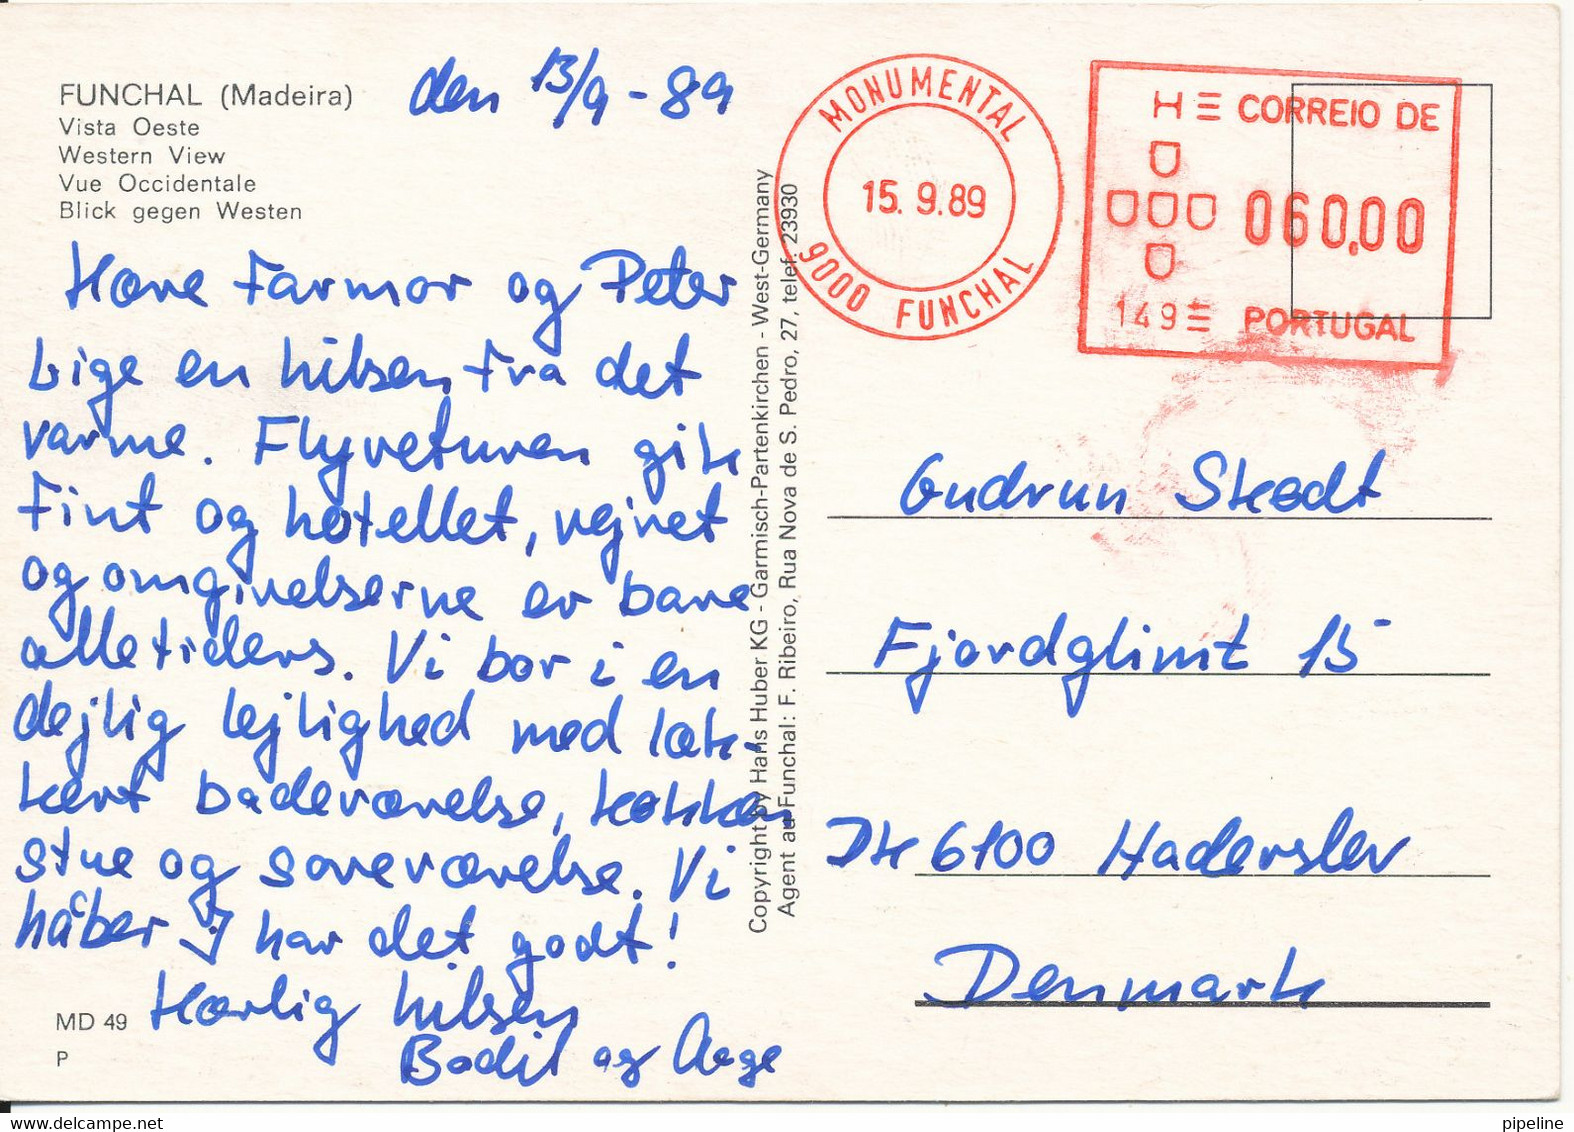 FUNCHAL (Madeira)
Vista Oeste
Western View
Vue Occidentale
Blick gegen Westen
den 13/9 - 89
Kære Farmor og Peter
Lige en hilsen fra det
varme. Flyveturen gik
fint og hotellet, vejret
og omgivelserne er bare
alletiders. Vi bor i en
dejlig lejlighed med læk-
kert badeværelse, køkken
stue og soveværelse. Vi
håber I har det godt!
Kærlig hilsen
Bodil og Aage
MD 49
P
Copyright by Hans Huber KG - Garmisch-Partenkirchen - West-Germany
Agent au Funchal: F. Ribeiro, Rua Nova de S. Pedro, 27, telef. 23930
MONUMENTAL
15. 9.89
9000 FUNCHAL
CORREIO DE
060,00
149 PORTUGAL
Gudrun Skødt
Fjordglimt 15
DK 6100 Haderslev
Denmark
pipeline